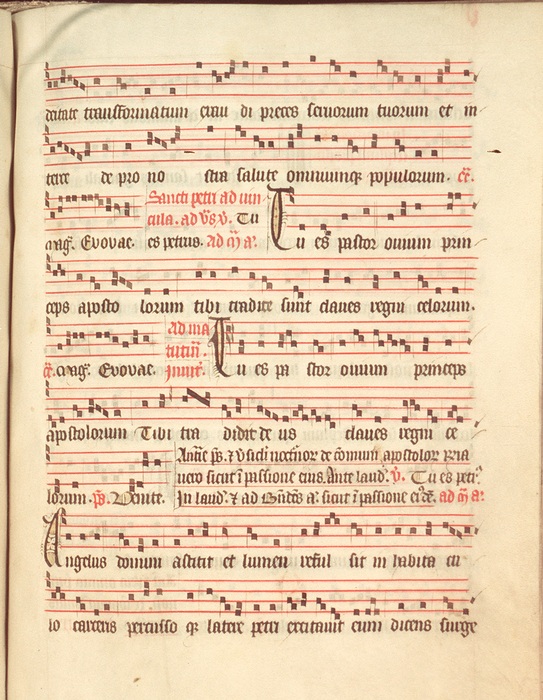 deitate transformatum exau di preces servorum tuorum et in
tere de pro no stra salute omniumq; populorum. cr.
Sancti petri ad uin
cula. ad vs. v. Tu
mag. Evovae. es petrus. Ad m a. Tu es pastor ovium prin
ceps aposto lorum tibi tradite sunt claves regni celorum.
Ad ma
tutin.
cr. mag. Evovae. Invit. Tu es pa stor ovium princeps
apostolorum Tibi tra didit de us claves regni ce
Ant. ps. et v sicut nocturnor de comuni apostolor
vero sicut i passione eius. Ante laud. v. Tu es petr.
lorum. ps. Venite. In laud. et ad a. sicut i passione ad m a.
Angelus domini astitit et lumen reful sit in habita cu
lo carceris percusso q; latere petri excitavit eum dicens surge